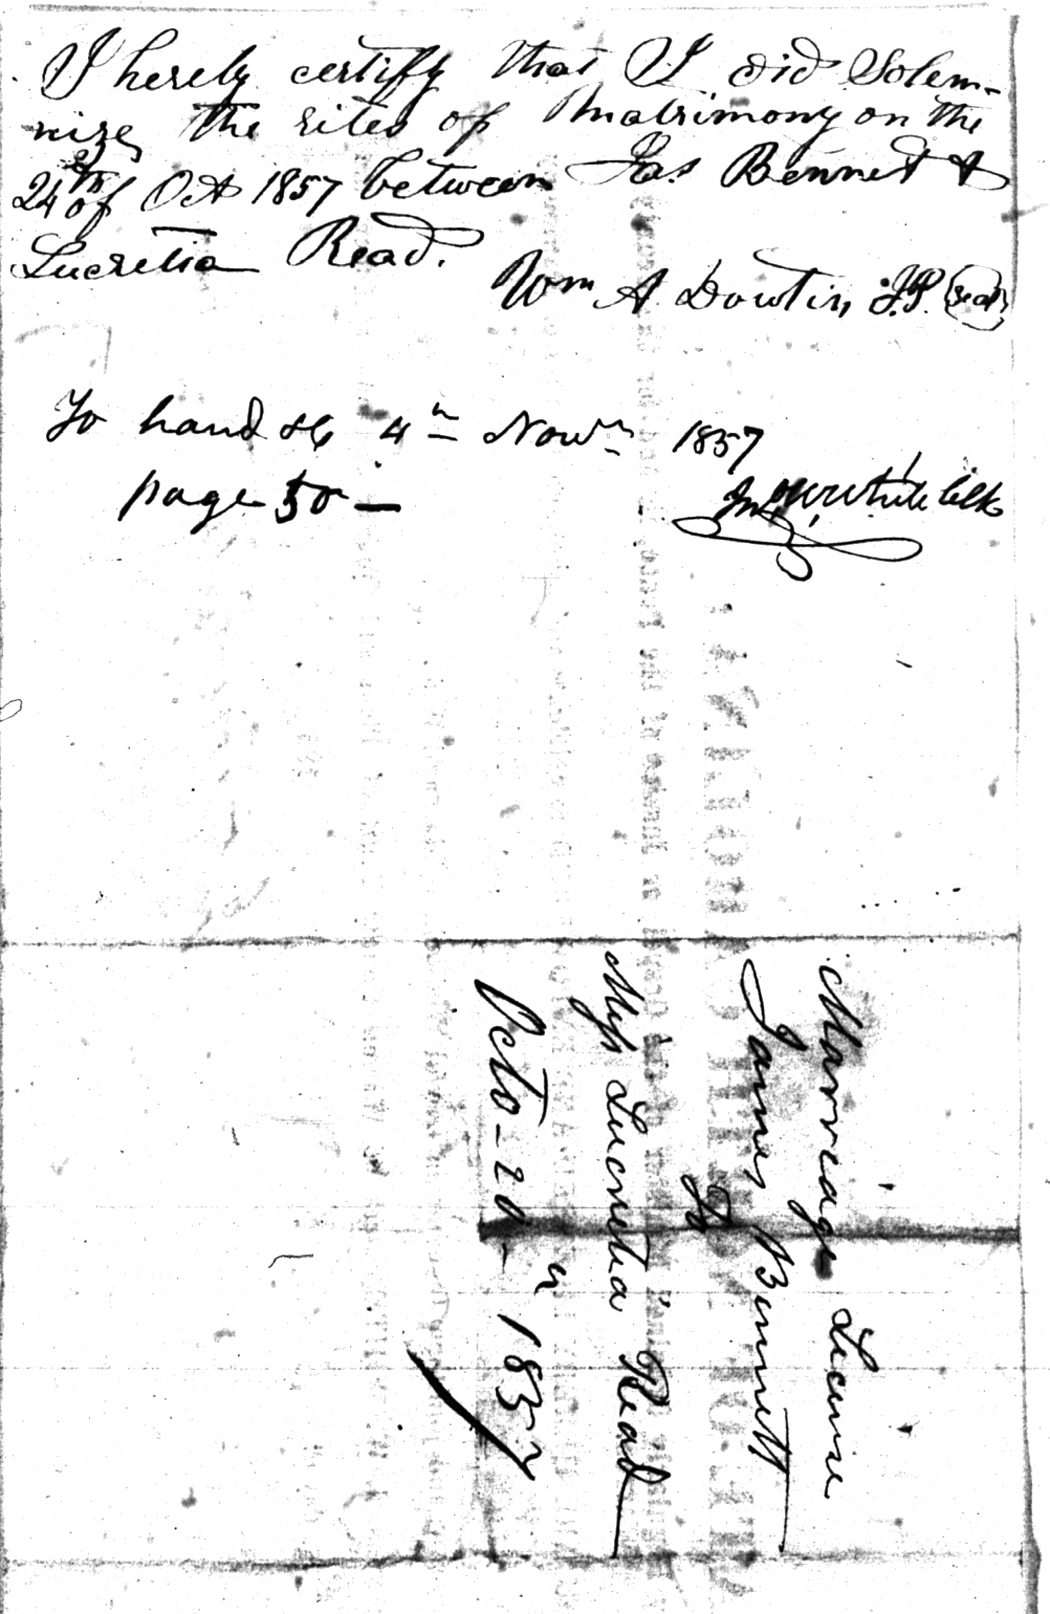 I hereby certify that I did Solem-
nize the rites of Matrimony on the
24th of Oct 1857 between Jas Bennet &
Lucretia Read.
Wm A. Dowtin J.P. (seal)
To hand & 4th Novr 1857
page 50 —
Jno White Clk
Marriage License
James Bennett
To
Miss Lucretia Read
Octo - 20th - 1857